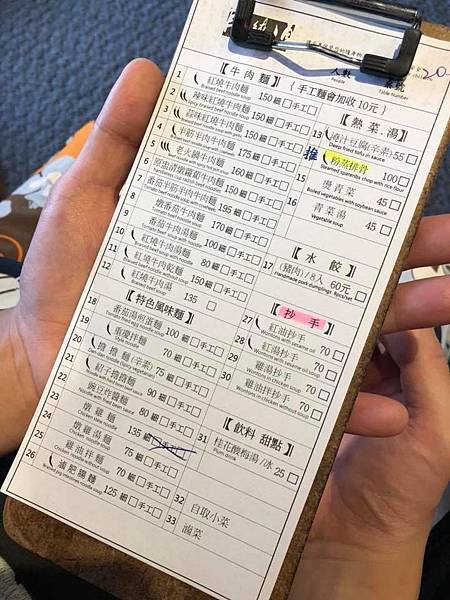 人數
People
桌號
Table Number
20
【牛肉麵】{手工麵會加收10元}
1 紅燒牛肉麵 150 細□手工□
Braised beef noodle soup
2 辣味紅燒牛肉麵 150 細□手工□
Spicy braised beef noodle soup
3 蒜味紅燒牛肉麵 150 細□手工□
4 半筋半肉牛肉麵 175 細□手工□
5 老火鍋牛肉麵 160 細□手工□
6 細□手工□
7 番茄半筋半肉牛肉麵 195 細□手工□
8 燉番茄牛肉麵 170 細□手工□
9 番茄牛肉湯麵 100 細□手工□
10 紅燒牛肉湯麵 80 細□手工□
11 紅燒牛肉乾麵 150 細□手工□
12 紅燒牛肉湯 135 □
【特色風味麵】
18 番茄湯煎蛋麵 100 細□手工□
Tomato fried egg noodle soup
19 重慶拌麵 70 細□手工□
Style noodle
20 擔擔麵(辛素) 75 細□手工□
21 紹子擔擔麵 90 細□手工□
22 豌豆炸醬麵 80 細□手工□
Noodle with fried bean sauce
23 燉雞麵 135 細□手工□
Chicken stew noodle
24 燉雞湯麵 75 細□手工□
Chicken noodle soup
25 雞油拌麵 70 細□手工□
Chicken noodle without soup
26 滷肥腸麵 125 細□手工□
Braised pig intestines noodle soup
【熱菜.湯】
13 港汁豆腐(辛素) 55 □
Deep fried tofu in sauce
推
14 粉蒸排骨 100 □
Steamed spareribs chop with rice flour
15 燙青菜 45 □
Boiled vegetables with soybean sauce
16 青菜湯 45 □
Vegetable soup
【水餃】
17 (豬肉)/8入 60元 □
Handmade pork dumplings 8pcs/set
【抄手】
27 紅油抄手 70 □
Wontons with sesame oil
28 紅湯抄手 70 □
29 雞湯抄手 70 □
Wontons in chicken soup
30 雞油拌抄手 70 □
Wontons in chicken without soup
【飲料 甜點】
31 桂花酸梅湯/冰 25 □
Plum drink
32 自取小菜
33 滷菜